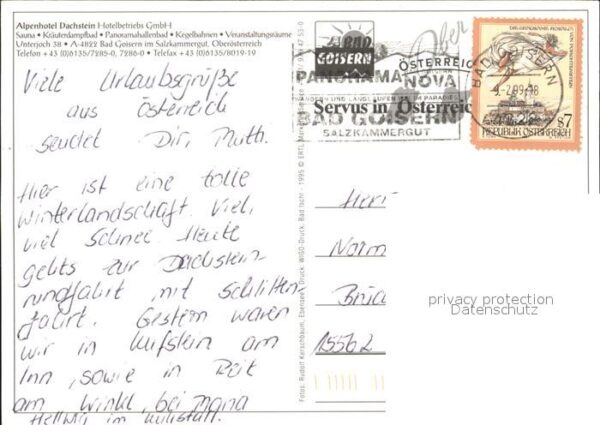 Alpenhotel Dachstein Hotelbetriebs GmbH
Sauna • Kräuterdampfbad • Panoramahallenbad • Kegelbahnen • Veranstaltungsräume
Unterjoch 38 • A-4822 Bad Goisern im Salzkammergut, Oberösterreich
Telefon + 43 (0)6135/7285-0, 7286-0 • Telefax + 43 (0)6135/8019-19
Viele Urlaubsgrüße
aus Österreich
sendet Dir, Ruth.
Hier ist eine tolle
Winterlandschaft. Viel,
viel Schnee. Heute
gehts zur Dachstein-
rundfahrt mit Schlitten-
fahrt. Gestern waren
wir in Kufstein am
Inn, sowie in Reit
am Winkl, bei Maria
Hellwig im Kuhstall.
Fotos: Rudolf Kerschbaum, Ebensee, Druck: WIGO-Druck, Bad Ischl - 1995 © ERTL
BAD
GOISERN
PANORAMA NOVA
Servus in Österreich
BAD GOISERN
SALZKAMMERGUT
ÖSTERREICH
BAD GOISERN
REPUBLIK ÖSTERREICH
S7
Herr
Norm
Brüc
15562
privacy protection
Datenschutz